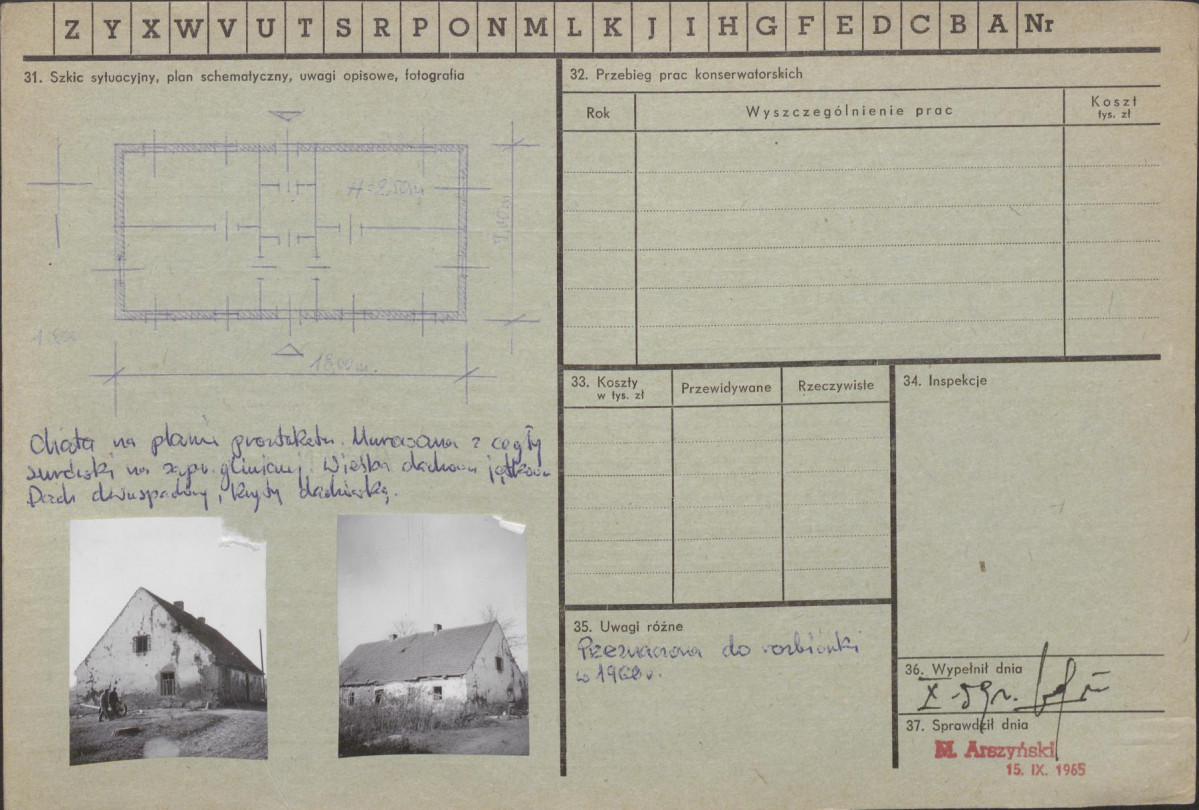 Z Y X W V U T S R P O N M L K J I H G F E D C B A Nr
31. Szkic sytuacyjny, plan schematyczny, uwagi opisowe, fotografia
H=2,50m
18,00m.
Chata na planie prostokąta. Murowana z cegły
surówki na zapr. glinianej. Więźba dachowa jętkowa
Dach dwuspadowy, kryty dachówką.
32. Przebieg prac konserwatorskich
Rok
Wyszczególnienie prac
Koszt
tys. zł
33. Koszty
w tys. zł
Przewidywane
Rzeczywiste
34. Inspekcje
35. Uwagi różne
Przeznaczona do rozbiórki
w 1960 r.
36. Wypełnił dnia
X 59 r.
37. Sprawdził dnia
M. Arszyński
15. IX. 1965